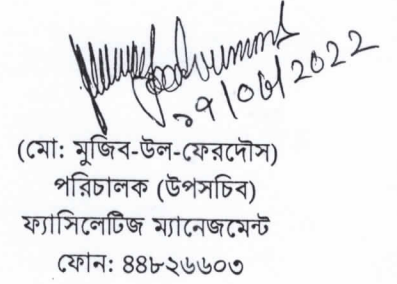 (মো: মুজিব-উল-ফেরদৌস)
পরিচালক (উপসচিব)
ফ্যাসিলেটিজ ম্যানেজমেন্ট
ফোন: ৪৪৮২৬৬০৩